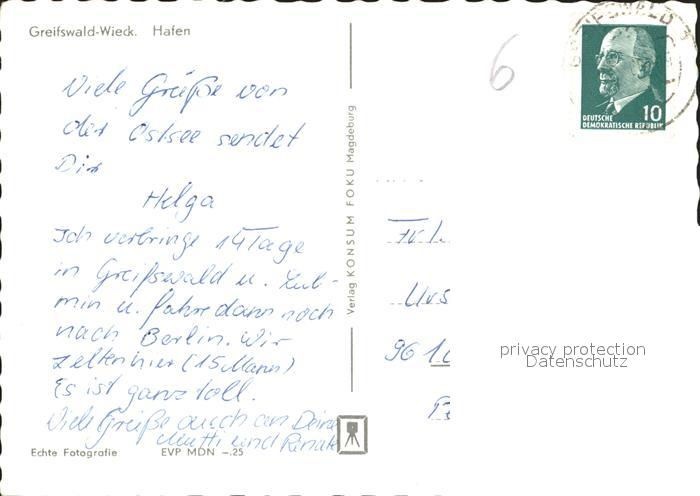 Greifswald-Wieck. Hafen
Viele Grüße von
der Ostsee sendet
Dir
Helga
Ich verbringe 14 Tage
in Greifswald u. Lub-
min u. fahre dann noch
nach Berlin. Wir
zelten hier (15 Mann)
Es ist ganz toll.
Viele Grüße auch an Deine
Mutti und Renate
Echte Fotografie EVP MDN –.25
Verlag KONSUM FOKU Magdeburg
6
DEUTSCHE
DEMOKRATISCHE REPUBLIK
10
Frl.
Urs
961
privacy protection
Datenschutz